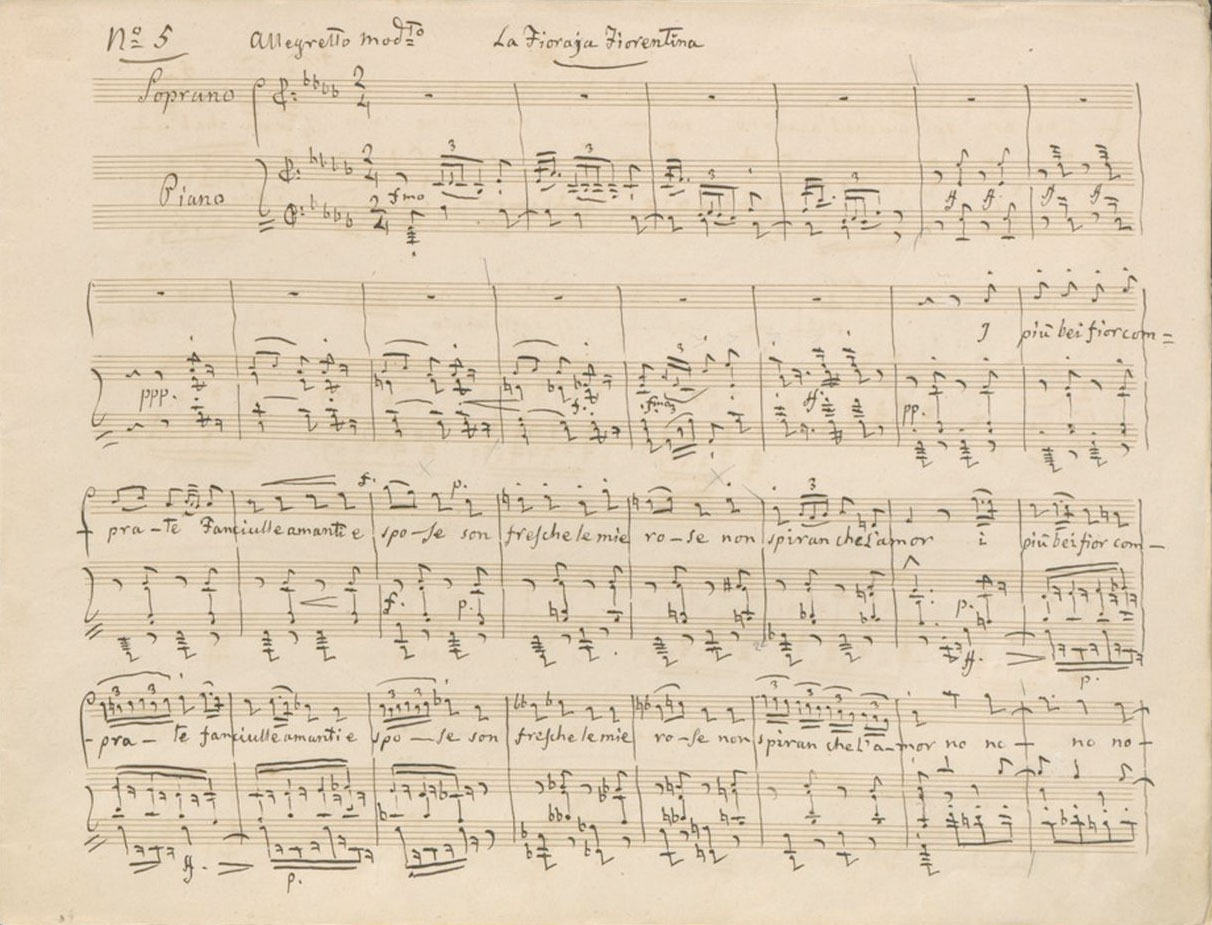 Nº 5 Allegretto mod.to La Fioraja Fiorentina
Soprano
Piano
fmo
ff ff ff ff
I più bei fior com=
ppp. f. fmo ff. pp.
f. p.
pra-te Fanciulle amanti e spo-se son fresche le mie ro-se non spiran che l'amor i più bei fior com-
f. p. p. ff. p.
-pra-te fanciulle amanti e spo-se son fresche le mie ro-se non spiran che l'a-mor no no- no no-
ff. p.